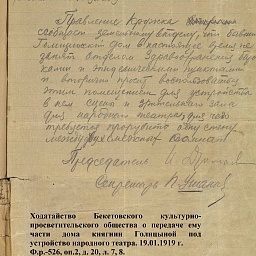 Правление Кружка
сообщает земельному отделу, что бывший
Голицынский дом в настоящее время не
занят отделом Здравоохранения
каким и эпидемическими
и которым просит воспользоваться
этим помещением для устройства
в нем сцены и зрительного зала
для народного театра, для чего
требуется прорубить одну стену
между
Председатель
Секретарь
Ходатайство Бекетовского культурно-
просветительского общества о передаче ему
части дома княгини Голицыной под
устройство народного театра. 19.01.1919 г.
Ф.р.-526, оп.2, д. 20, л. 7, 8.